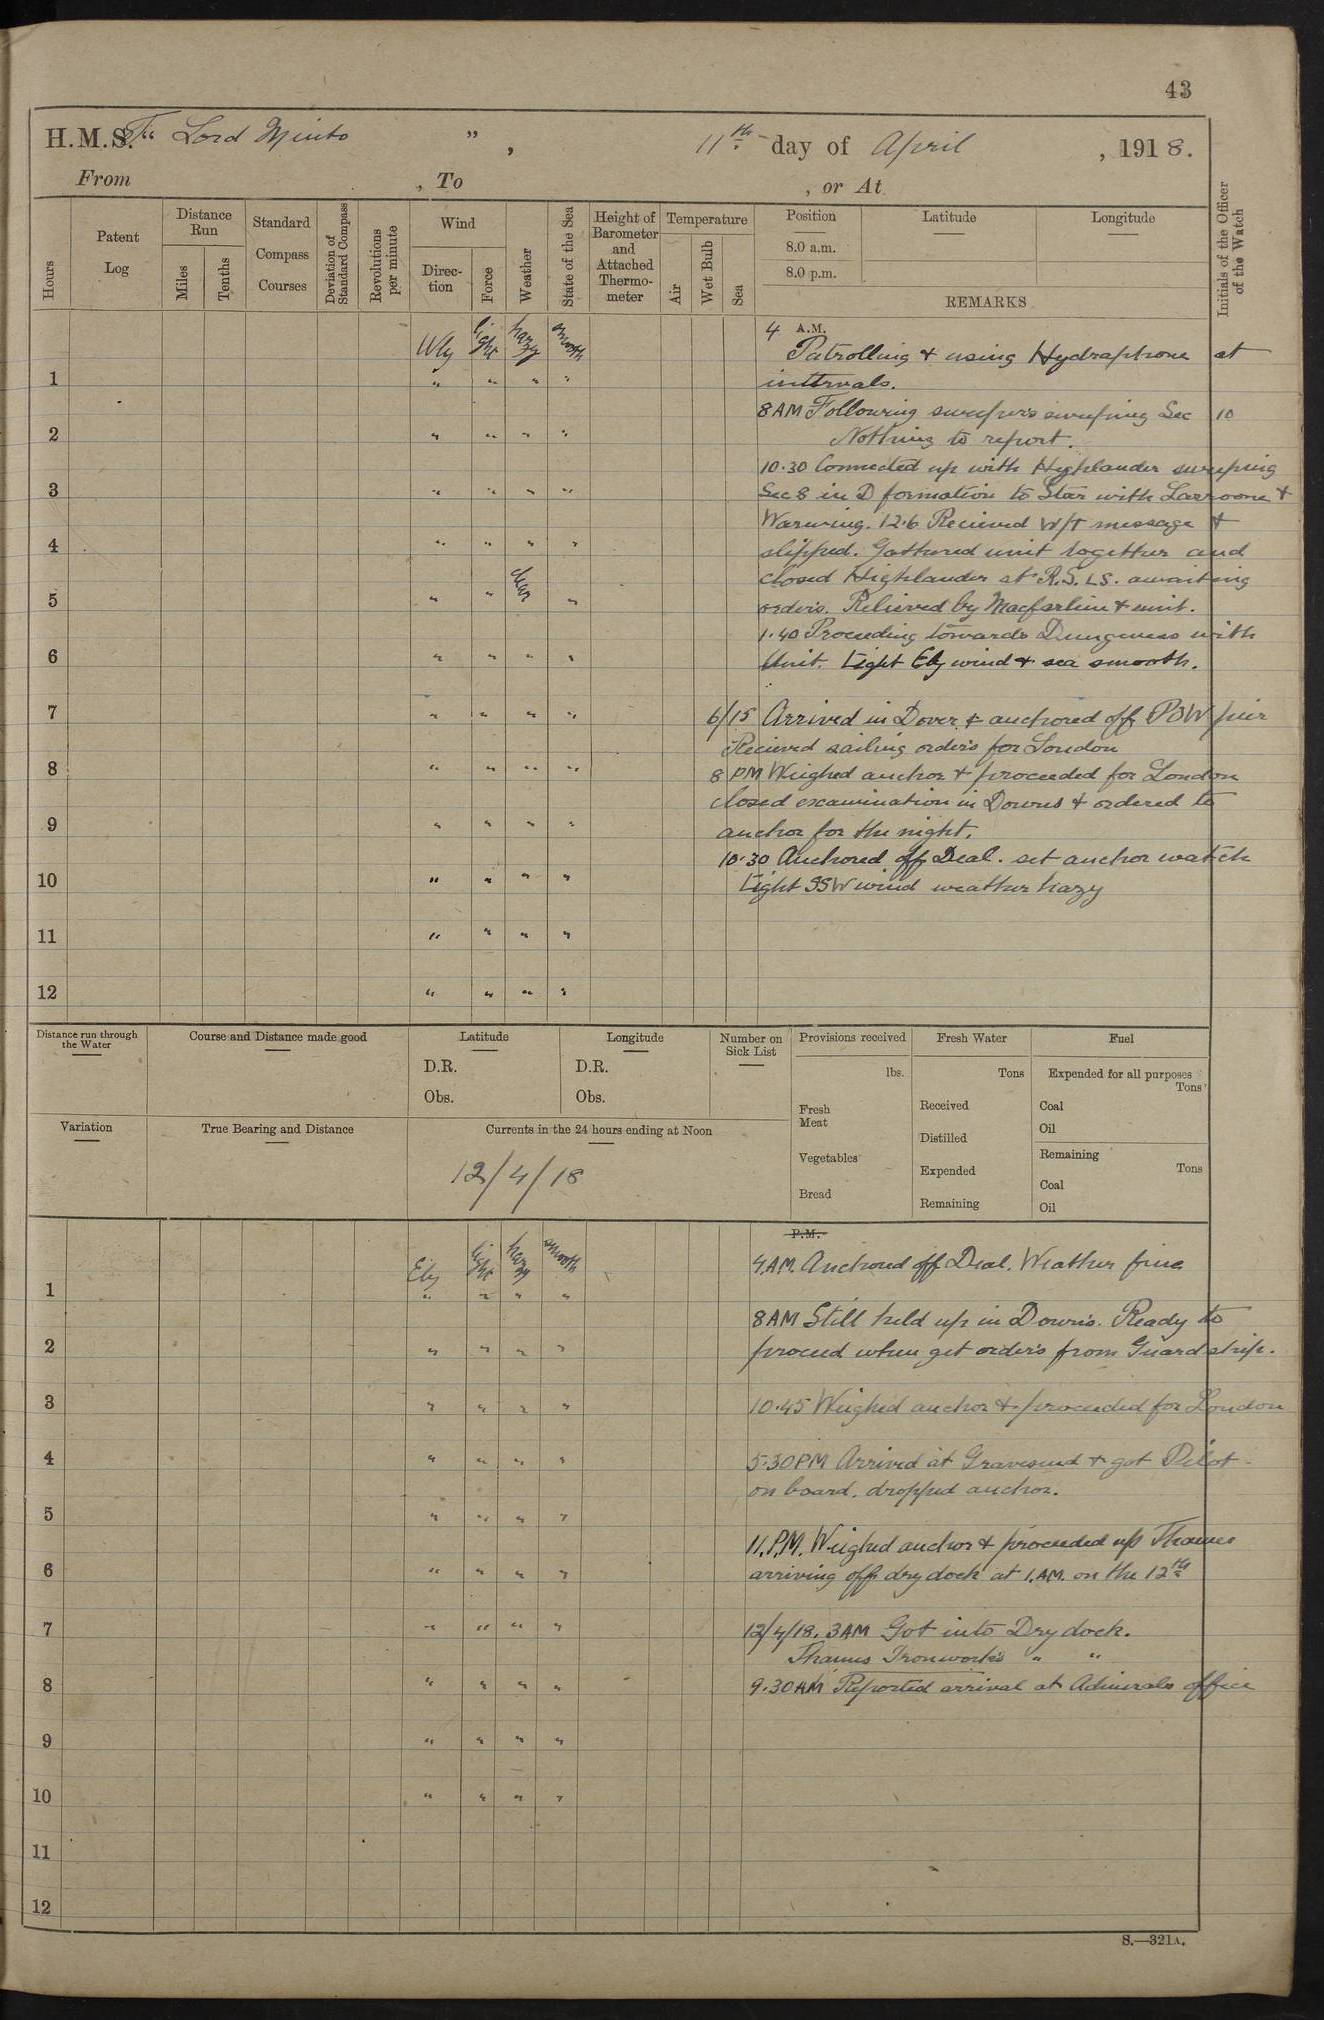 43
H.M.S.T. " Lord Minto ", 11th day of April, 1918.
From , To , or At
Hours
Patent Log
Distance Run
Miles
Tenths
Standard Compass Courses
Deviation of Standard Compass
Revolutions per minute
Wind
Direction
Force
Weather
State of the Sea
Height of Barometer and Attached Thermometer
Temperature
Air
Wet Bulb
Sea
Position
8.0 a.m.
8.0 p.m.
Latitude
Longitude
REMARKS
Initials of the Officer of the Watch
Wly light hazy smooth
4 A.M.
Patrolling & using Hydraphone at
1 " " " "
intervals.
8 AM Following sweepers sweeping Sec 10
2 " " " "
Nothing to report.
10.30 Connected up with Highlander sweeping
3 " " " "
Sec 8 in D formation to Star with Larroone &
Warwing. 12.6 Recieved W/T message &
4 " " " "
slipped. Gathered unit together and
clear
closed Highlander at R.S. LS. awaiting
5 " " "
orders. Relieved by Macfarline & unit.
1.40 Proceeding towards Dungeness with
6 " " " "
Unit. Light Ely wind & sea smooth.
7 " " " "
6/15 Arrived in Dover & anchored off POW pier
Recieved sailing orders for London
8 " " " "
8 PM Weighed anchor & proceeded for London
closed examination in Downs & ordered to
9 " " " "
anchor for the night.
10.30 Anchored off Deal. set anchor watch
10 " " " "
Light SSW wind weather hazy
11 " " " "
12 " " " "
Distance run through the Water
Course and Distance made good
Latitude
D.R.
Obs.
Longitude
D.R.
Obs.
Number on Sick List
Provisions received
lbs.
Fresh Meat
Vegetables
Bread
Fresh Water
Tons
Received
Distilled
Expended
Remaining
Fuel
Expended for all purposes
Tons
Coal
Oil
Remaining
Tons
Coal
Oil
Variation
True Bearing and Distance
Currents in the 24 hours ending at Noon
12/4/18
P.M.
Ely light hazy smooth
4 A.M. Anchored off Deal. Weather fine
1 " " " "
8 AM Still held up in Downs. Ready to
2 " " " "
proceed when get orders from Guardship.
3 " " " "
10.45 Weighed anchor & proceeded for London
4 " " " "
5.30 PM Arrived at Gravesend & got Pilot
on board, dropped anchor.
5 " " " "
11. P.M. Weighed anchor & proceeded up Thames
6 " " " "
arriving off dry dock at 1. AM. on the 12th
7 " " " "
12/4/18. 3 AM Got into Dry dock.
Thames Ironworks " "
8 " " " "
9.30 AM Reported arrival at Admirals office
9 " " " "
10 " " " "
11
12
S.—321A.